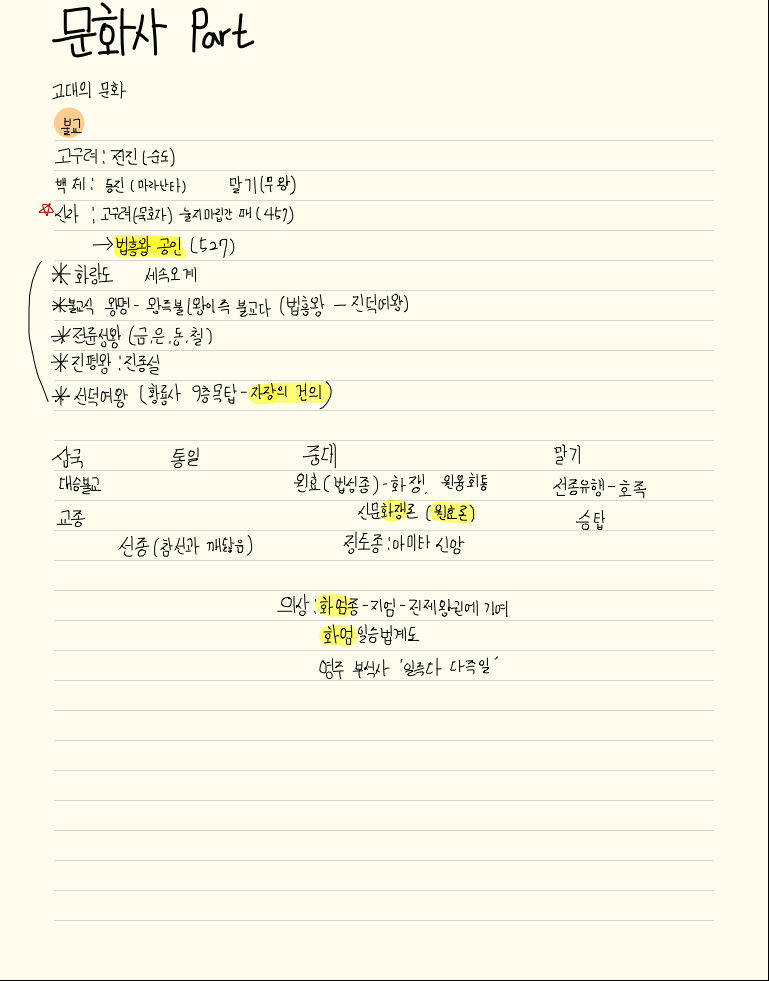 문화사 Part
고대의 문화
불교
고구려 : 전진 (순도)
백제 : 동진 (마라난타) 말기 (무왕)
신라 : 고구려(묵호자) 눌지마립간 때 (457)
→ 법흥왕 공인 (527)
* 화랑도 세속오계
* 불교식 왕명 - 왕즉불 (왕이 즉 불교다 (법흥왕 - 진덕여왕)
* 전륜성왕 (금,은,동,철)
* 진평왕 : 진종설
* 선덕여왕 (황룡사 9층목탑 - 자장의 건의)
삼국 통일 중대 말기
대승불교 원효 (법성종) - 화쟁, 원융회통 선종유행 - 호족
교종 십문화쟁론 (원효론) 승탑
선종 (참선과 깨달음) 정토종 : 아미타 신앙
의상 : 화엄종 - 지엄 - 전제왕권에 기여
화엄일승법계도
영주 부석사 '일즉다 다즉일'